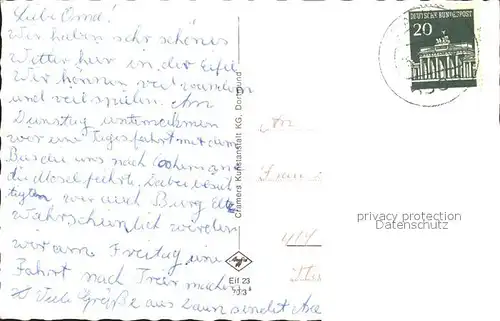 Liebe Oma!
Wir haben sehr schönes
Wetter hier in der Eifel
Wir können viel wandern
und viel spielen. Am
Dienstag unternahmen
wir eine Tagesfahrt mit dem
Bus der uns nach Cochem an
die Mosel führte. Dabei besich
tigten wir auch Burg Eltz
Wahrscheinlich werden
wir am Freitag eine
Fahrt nach Trier machen
Viele Grüße aus Daun sendet
Cramers Kunstanstalt KG, Dortmund
Eil 23
DEUTSCHE BUNDESPOST
20
An
privacy protection
Datenschutz